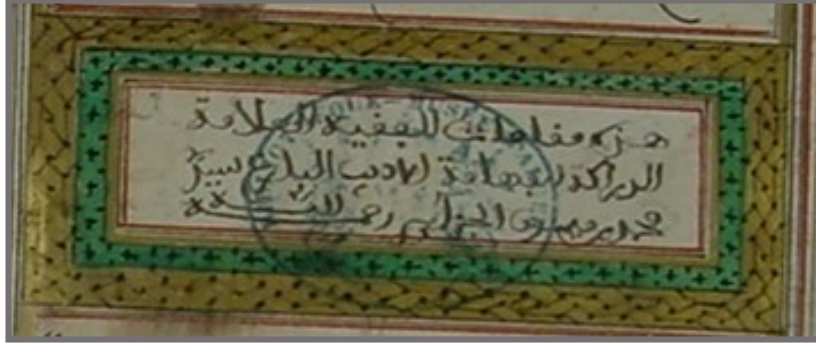 هذه مقامات للفقيه العلامة
الدراكة الفهامة الاديب البارع سيدي
محمد بن ميمون الجزايري رحمه الله